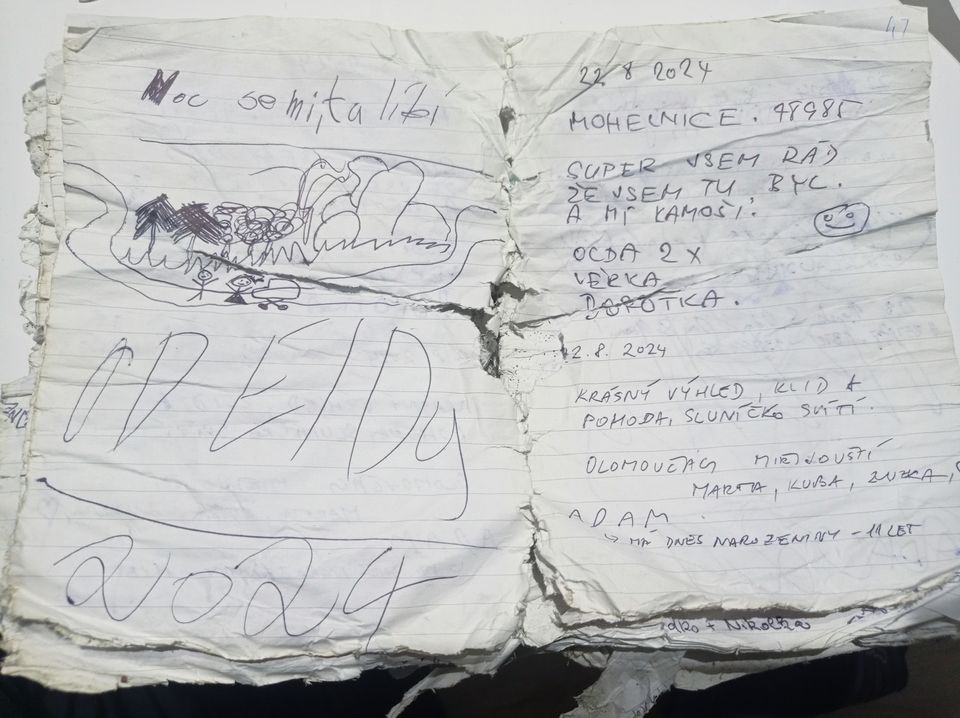 Moc se mi,ta libí
OD EIDy
2024
47
22 8 2024
MOHELNICE. 78985
SUPER JSEM RÁD
ŽE JSEM TU BYL.
A MÍ KAMOŠI.
OLDA 2X
VĚRKA
DAROTKA.
2.8. 2024
KRÁSNÝ VÝHLED, KLID A
POHODA, SLUNÍČKO SVÍTÍ.
OLOMOUČÁCI
MARTA, KUBA, ZUZKA,
ADAM.
↳ MÁ DNES NAROZENINY - 11 LET
+ Nikolka